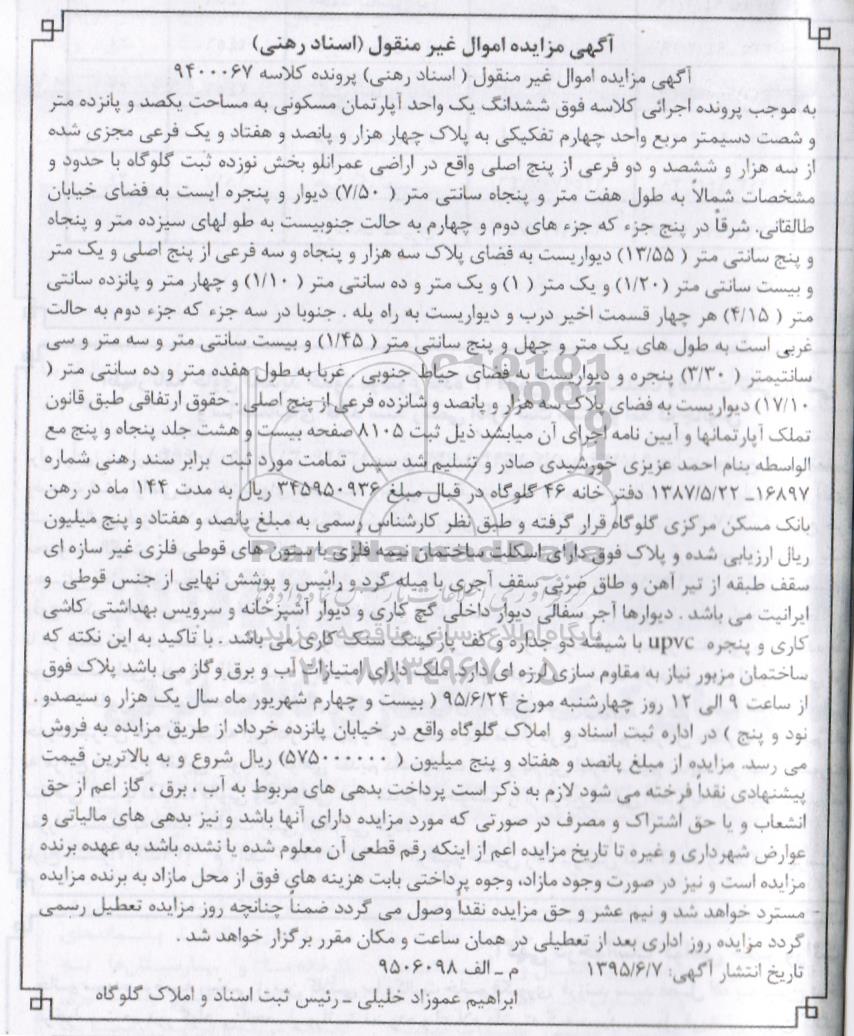 آگهی مزایده اموال غیر منقول (اسناد رهنی)
آگهی مزایده اموال غیر منقول ( اسناد رهنی) پرونده کلاسه ۹۴۰۰۰۶۷
به موجب پرونده اجرائی کلاسه فوق ششدانگ یک واحد آپارتمان مسکونی به مساحت یکصد و پانزده متر
و شصت دسیمتر مربع واحد چهارم تفکیکی به پلاک چهار هزار و پانصد و هفتاد و یک فرعی مجزی شده
از سه هزار و ششصد و دو فرعی از پنج اصلی واقع در اراضی عمرانلو بخش نوزده ثبت گلوگاه با حدود و
مشخصات شمالاً به طول هفت متر و پنجاه سانتی متر ( ۷/۵۰) دیوار و پنجره ایست به فضای خیابان
طالقانی. شرقاً در پنج جزء که جزء های دوم و چهارم به حالت جنوبیست به طو لهای سیزده متر و پنجاه
و پنج سانتی متر ( ۱۳/۵۵) دیواریست به فضای پلاک سه هزار و پنجاه و سه فرعی از پنج اصلی و یک متر
و بیست سانتی متر (۱/۲۰) و یک متر ( ۱) و یک متر و ده سانتی متر ( ۱/۱۰) و چهار متر و پانزده سانتی
متر ( ۴/۱۵) هر چهار قسمت اخیر درب و دیواریست به راه پله . جنوبا در سه جزء که جزء دوم به حالت
غربی است به طول های یک متر و چهل و پنج سانتی متر ( ۱/۴۵) و بیست سانتی متر و سه متر و سی
سانتیمتر ( ۳/۳۰) پنجره و دیواریست به فضای حیاط جنوبی . غربا به طول هفده متر و ده سانتی متر (
۱۷/۱۰) دیواریست به فضای پلاک سه هزار و پانصد و شانزده فرعی از پنج اصلی . حقوق ارتفاقی طبق قانون
تملک آپارتمانها و آیین نامه اجرای آن میابشد ذیل ثبت ۸۱۰۵ صفحه بیست و هشت جلد پنجاه و پنج مع
الواسطه بنام احمد عزیزی خورشیدی صادر و تسلیم شد سپس تمامت مورد ثبت برابر سند رهنی شماره
۱۶۸۹۷ـ ۱۳۸۷/۵/۲۲ دفتر خانه ۴۶ گلوگاه در قبال مبلغ ۳۴۵۹۵۰۹۳۶ ریال به مدت ۱۴۴ ماه در رهن
بانک مسکن مرکزی گلوگاه قرار گرفته و طبق نظر کارشناس رسمی به مبلغ پانصد و هفتاد و پنج میلیون
ریال ارزیابی شده و پلاک فوق دارای اسکلت ساختمان نیمه فلزی با ستون های قوطی فلزی غیر سازه ای
سقف طبقه از تیر آهن و طاق ضربی سقف آجری با میله گرد و رابیس و پوشش نهایی از جنس قوطی و
ایرانیت می باشد . دیوارها آجر سفالی دیوار داخلی گچ کاری و دیوار آشپزخانه و سرویس بهداشتی کاشی
کاری و پنجره upvc با شیشه دو جداره و کف پارکینگ سنگ کاری می باشد . با تاکید به این نکته که
ساختمان مزبور نیاز به مقاوم سازی لرزه ای دارد ملک دارای امتیازات آب و برق و گاز می باشد پلاک فوق
از ساعت ۹ الی ۱۲ روز چهارشنبه مورخ ۹۵/۶/۲۴ ( بیست و چهارم شهریور ماه سال یک هزار و سیصدو
نود و پنج ) در اداره ثبت اسناد و املاک گلوگاه واقع در خیابان پانزده خرداد از طریق مزایده به فروش
می رسد. مزایده از مبلغ پانصد و هفتاد و پنج میلیون ( ۵۷۵۰۰۰۰۰۰) ریال شروع و به بالاترین قیمت
پیشنهادی نقداً فرخته می شود لازم به ذکر است پرداخت بدهی های مربوط به آب ، برق ، گاز اعم از حق
انشعاب و یا حق اشتراک و مصرف در صورتی که مورد مزایده دارای آنها باشد و نیز بدهی های مالیاتی و
عوارض شهرداری و غیره تا تاریخ مزایده اعم از اینکه رقم قطعی آن معلوم شده یا نشده باشد به عهده برنده
مزایده است و نیز در صورت وجود مازاد، وجوه پرداختی بابت هزینه های فوق از محل مازاد به برنده مزایده
مسترد خواهد شد و نیم عشر و حق مزایده نقداً وصول می گردد ضمناً چنانچه روز مزایده تعطیل رسمی
گردد مزایده روز اداری بعد از تعطیلی در همان ساعت و مکان مقرر برگزار خواهد شد .
تاریخ انتشار آگهی: ۱۳۹۵/۶/۷ م ـ الف ۹۵۰۶۰۹۸
ابراهیم عموزاد خلیلی ـ رئیس ثبت اسناد و املاک گلوگاه
ParsNamadData
پایگاه اطلاع رسانی مناقصه و مزایده